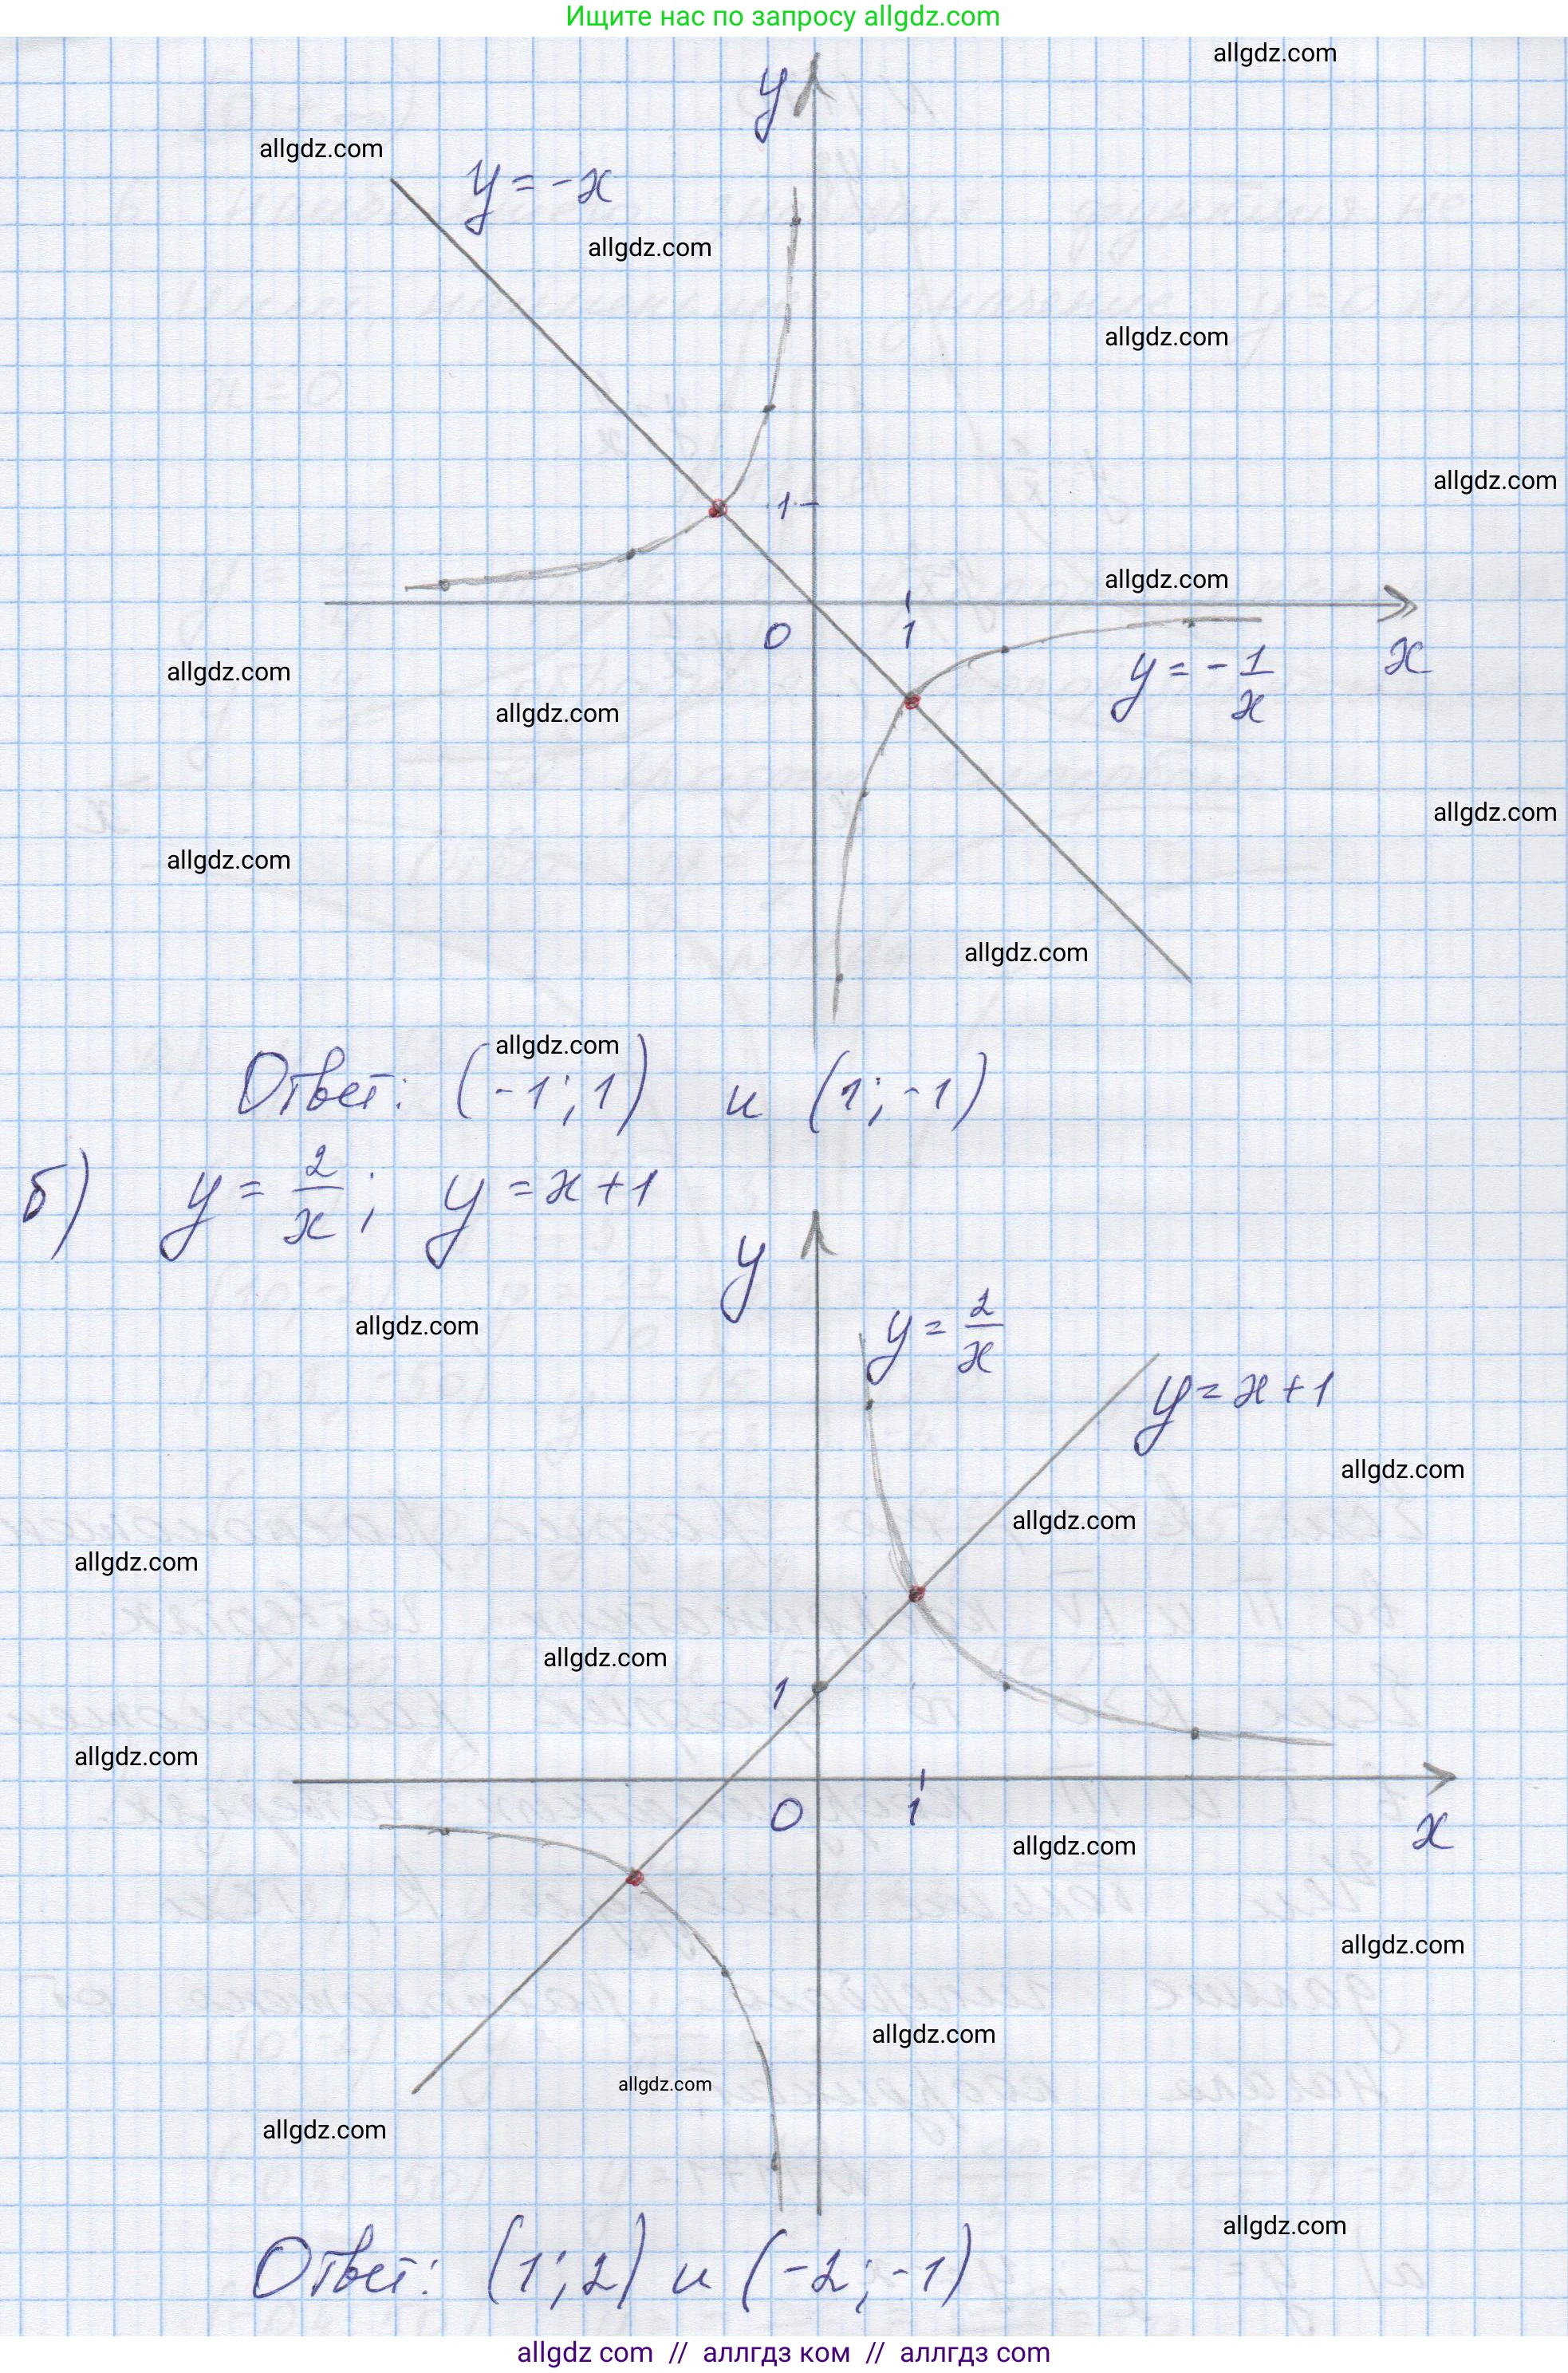 Ищите нас по запросу allgdz.com
allgdz.com
y
allgdz.com
y = -x
allgdz.com
allgdz.com
allgdz.com
1
allgdz.com
0
1
x
y = - 1/x
allgdz.com
allgdz.com
allgdz.com
allgdz.com
allgdz.com
allgdz.com
Ответ: (-1; 1) и (1; -1)
б) y = 2/x; y = x+1
y
y = 2/x
allgdz.com
y = x+1
allgdz.com
allgdz.com
allgdz.com
allgdz.com
1
allgdz.com
0
1
x
allgdz.com
allgdz.com
allgdz.com
allgdz.com
allgdz.com
allgdz.com
Ответ: (1; 2) и (-2; -1)
allgdz com // аллгдз ком // аллгдз com